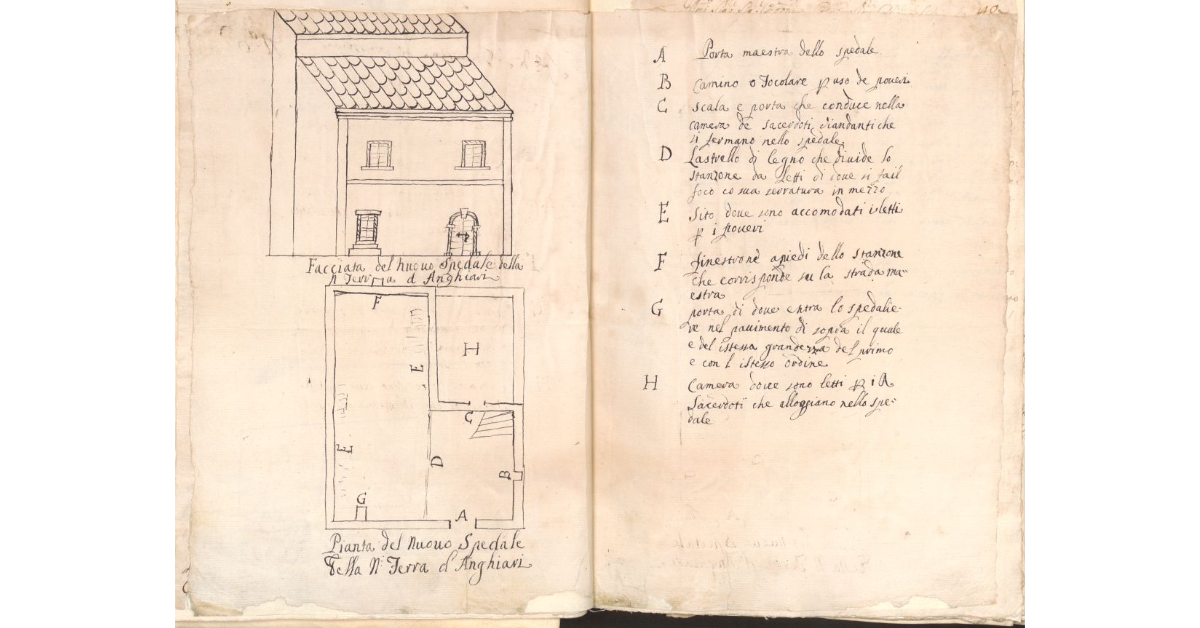 Facciata del nuovo Spedale della
N. Terra d'Anghiari
F
E
H
C
E
D
B
G
A
Pianta del Nuouo Spedale
della N. Terra d'Anghiari
A Porta maestra dello spedale
B Camino o focolare p uso de poueri
C Scala e porta che conduce nella
camera de sacerdoti viandanti che
si fermano nello spedale
D Lastrello di legno che diuide lo
stanzone da letti di doue si fa il
foco co sua serratura in mezzo
E Sito doue sono accomodati i letti
p i poueri
F finestrone a piedi dello stanzone
che corrisponde su la strada ma-
estra
G porta di doue entra lo spedalie-
re nel pauimento di sopra il quale
e del istessa grandezza del primo
e con l istesso ordine
H Camera doue sono letti p i R
Sacerdoti che alloggiano nello spe-
dale